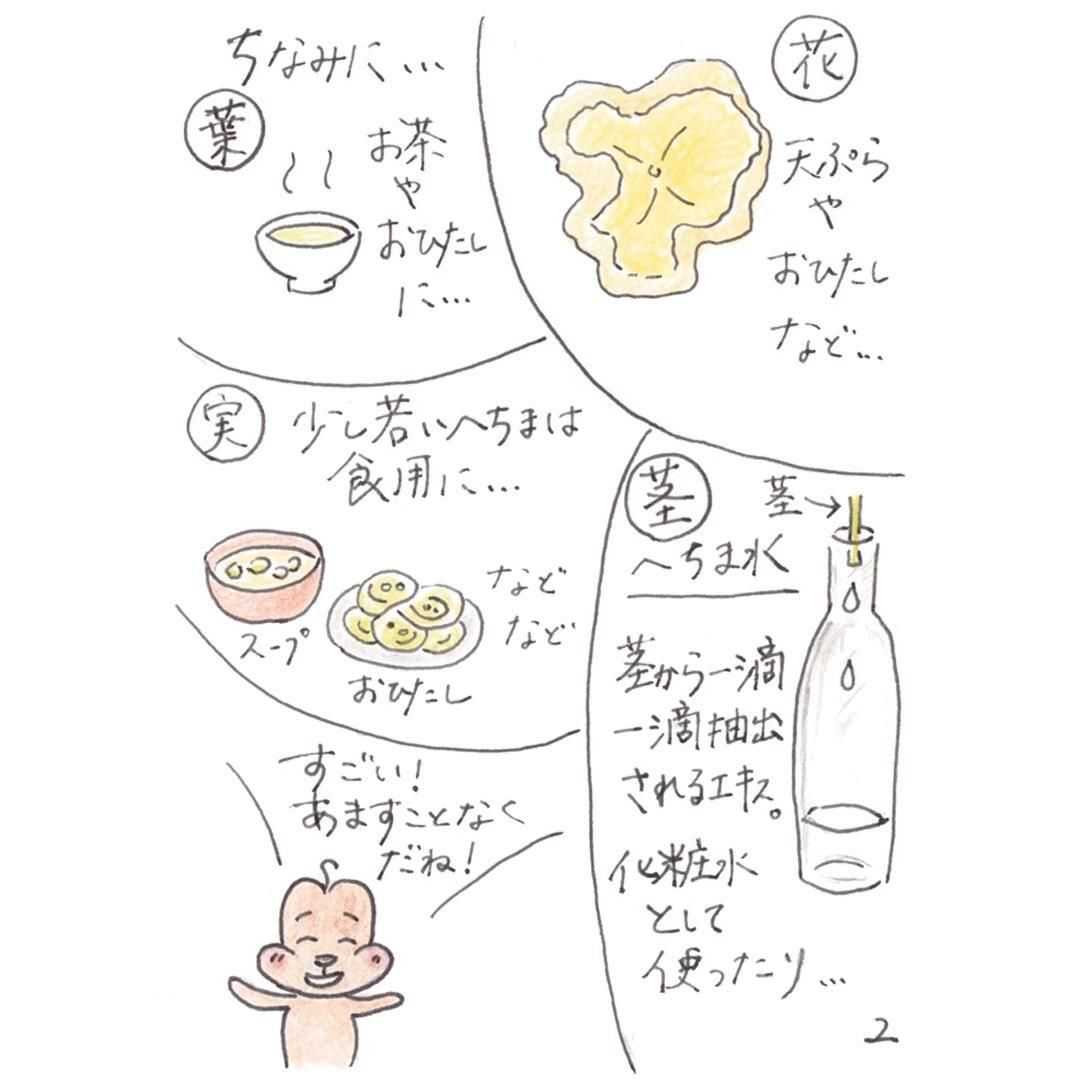 ちなみに…
葉
お茶
や
おひたし
に…
花
天ぷら
や
おひたし
など…
実
少し若いへちまは
食用に…
スープ
おひたし
など
など
茎
茎→
へちま水
茎から一滴
一滴抽出
されるエキス。
化粧水
として
使ったり…
すごい!
あますことなく
だね!
2